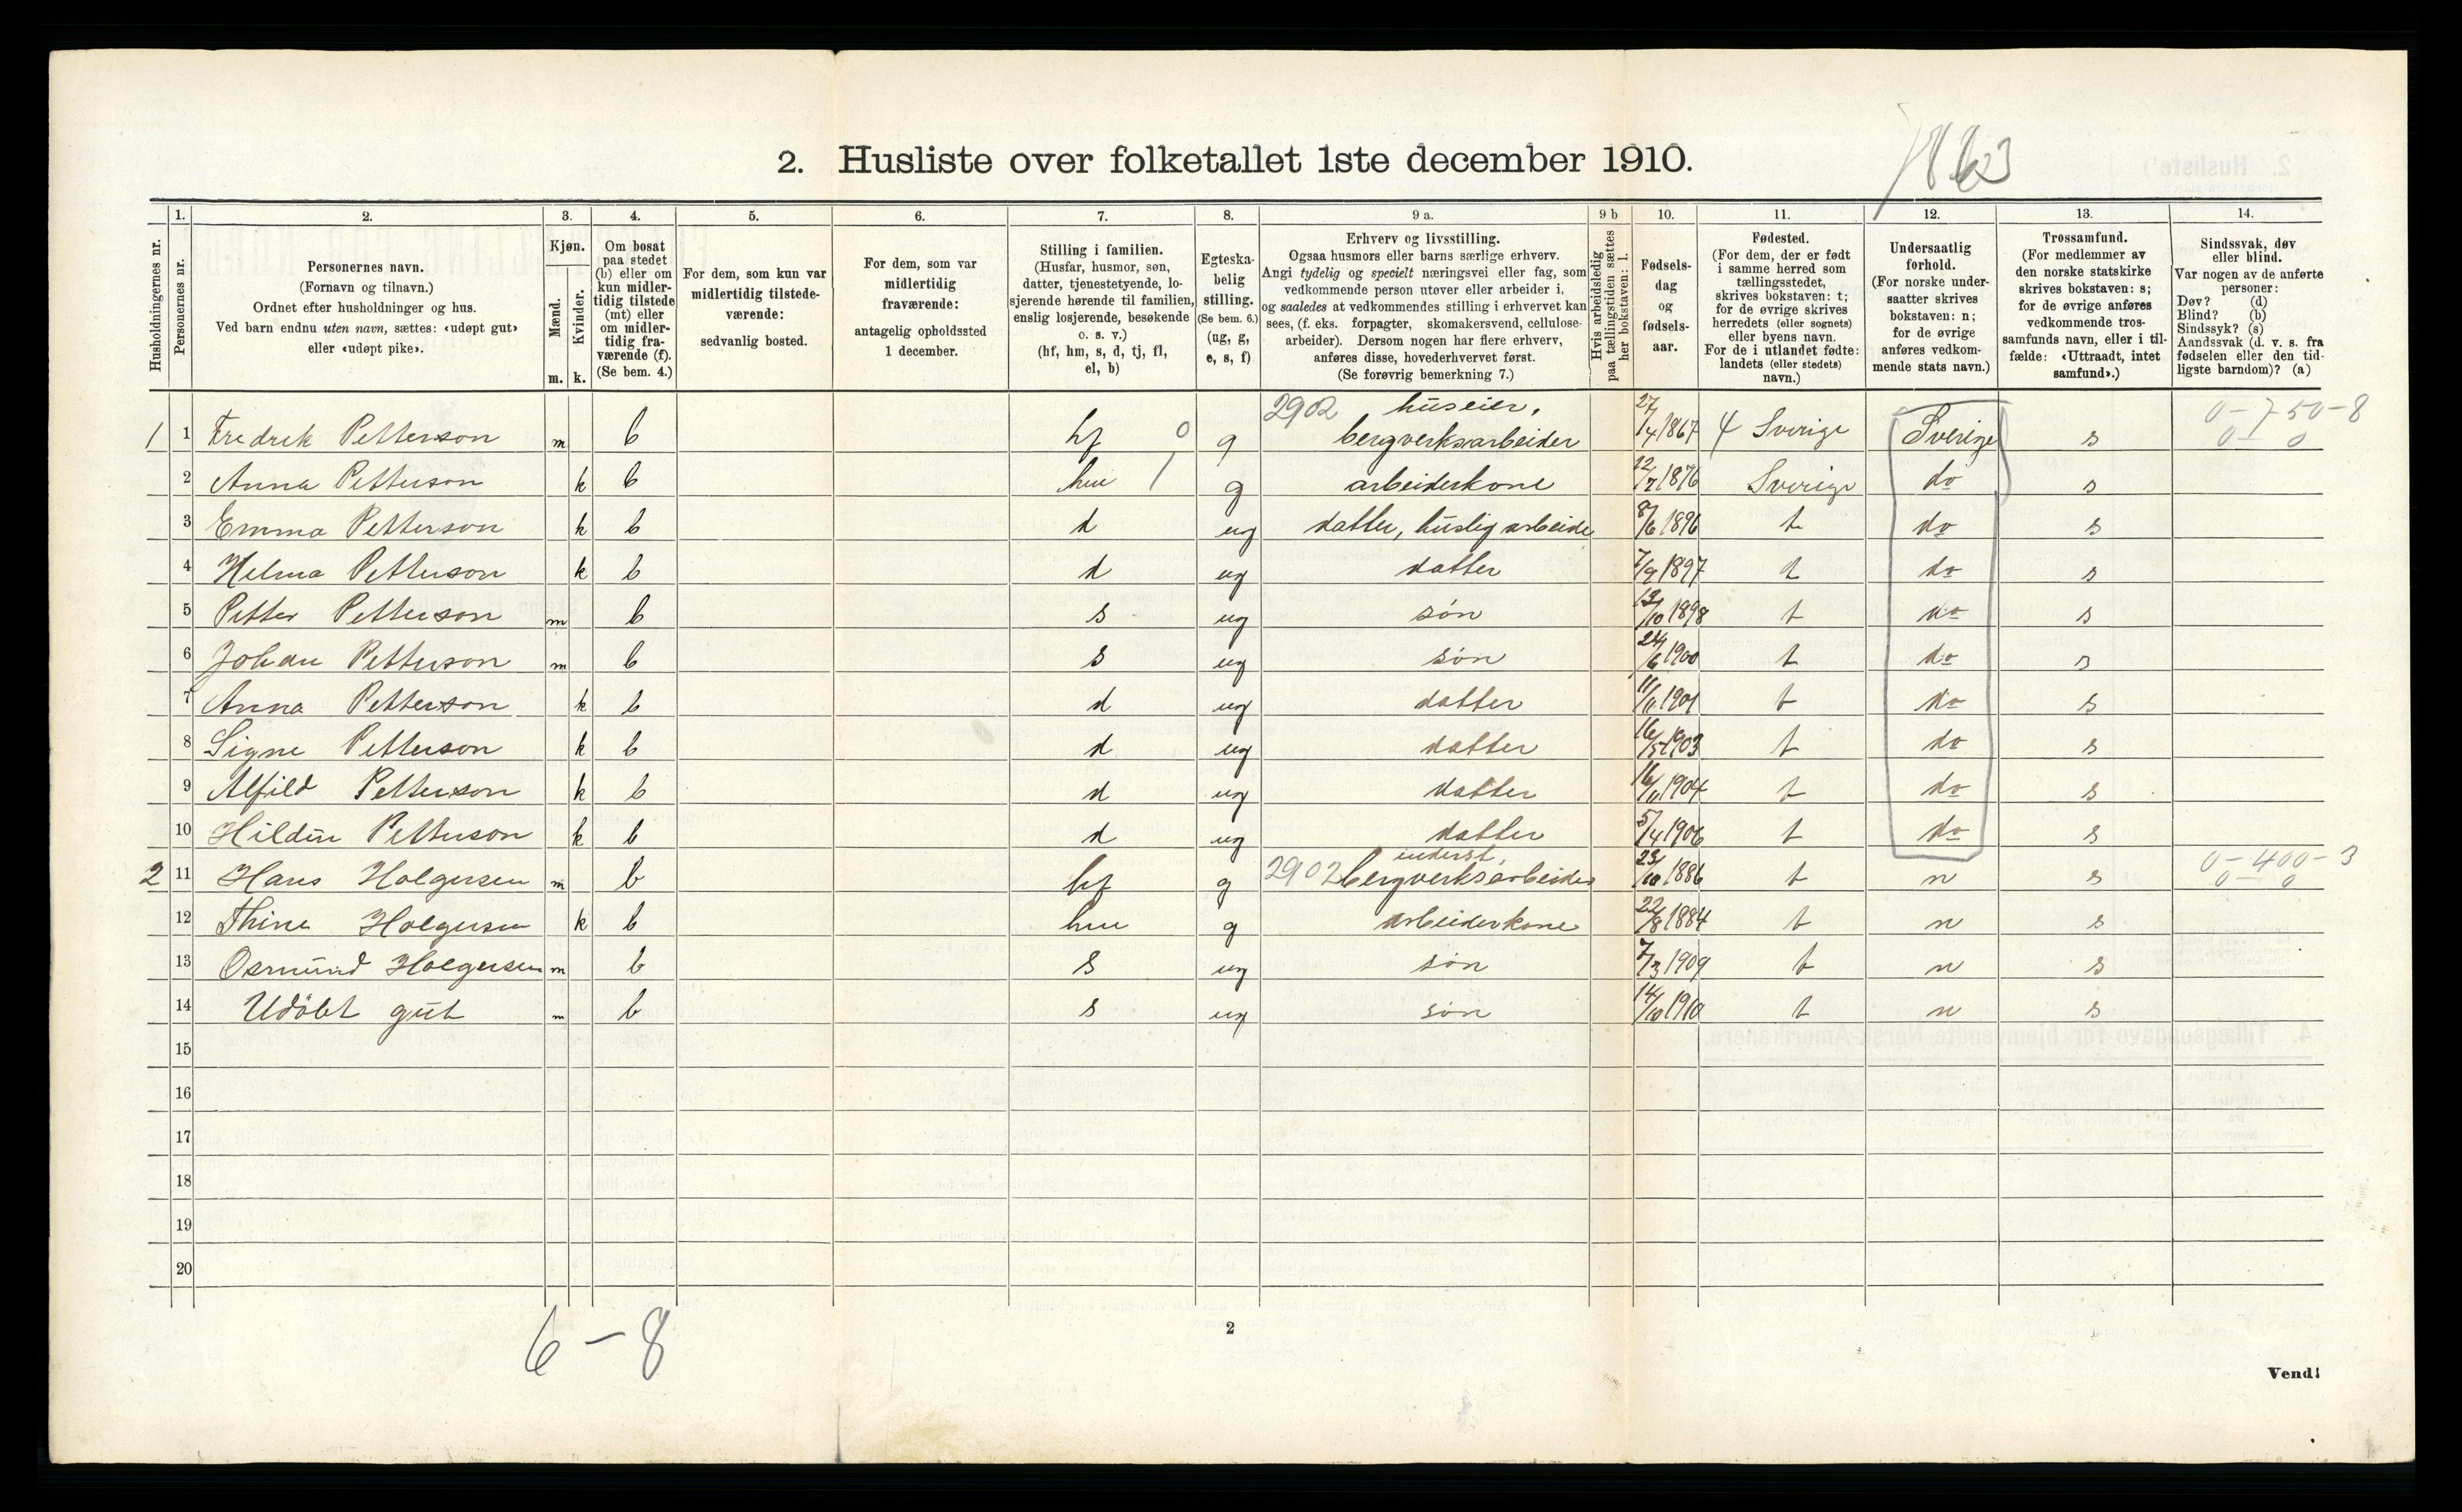 2. Husliste over folketallet 1ste december 1910.
Husholdningernes nr.
1.
Personernes nr.
2.
Personernes navn.
(Fornavn og tilnavn.)
Ordnet efter husholdninger og hus.
Ved barn endnu uten navn, sættes: «udøpt gut»
eller «udøpt pike».
3.
Kjøn.
Mænd.
Kvinder.
m.
k.
4.
Om bosat
paa stedet
(b) eller om
kun midler-
tidig tilstede
(mt) eller
om midler-
tidig fra-
værende (f).
(Se bem. 4.)
5.
For dem, som kun var
midlertidig tilstede-
værende:
sedvanlig bosted.
6.
For dem, som var
midlertidig
fraværende:
antagelig opholdssted
1 december.
7.
Stilling i familien.
(Husfar, husmor, søn,
datter, tjenestetyende, lo-
sjerende hørende til familien,
enslig losjerende, besøkende
o. s. v.)
(hf, hm, s, d, tj, fl,
el, b)
8.
Egteska-
belig
stilling.
(Se bem. 6.)
(ug, g,
e, s, f)
9 a.
Erhverv og livsstilling.
Ogsaa husmors eller barns særlige erhverv.
Angi tydelig og specielt næringsvei eller fag, som
vedkommende person utøver eller arbeider i,
og saaledes at vedkommendes stilling i erhvervet kan
sees, (f. eks. forpagter, skomakersvend, cellulose-
arbeider). Dersom nogen har flere erhverv,
anføres disse, hovederhvervet først.
(Se forøvrig bemerkning 7.)
9 b
Hvis arbeidsledig
paa tællingstiden sættes
her bokstaven: l.
10.
Fødsels-
dag
og
fødsels-
aar.
11.
Fødested.
(For dem, der er født
i samme herred som
tællingsstedet,
skrives bokstaven: t;
for de øvrige skrives
herredets (eller sognets)
eller byens navn.
For de i utlandet fødte:
landets (eller stedets)
navn.)
12.
Undersaatlig
forhold.
(For norske under-
saatter skrives
bokstaven: n;
for de øvrige
anføres vedkom-
mende stats navn.)
13.
Trossamfund.
(For medlemmer av
den norske statskirke
skrives bokstaven: s;
for de øvrige anføres
vedkommende tros-
samfunds navn, eller i til-
fælde: «Uttraadt, intet
samfund».)
14.
Sindssvak, døv
eller blind.
Var nogen av de anførte
personer:
Døv? (d)
Blind? (b)
Sindssyk? (s)
Aandssvak (d. v. s. fra
fødselen eller den tid-
ligste barndom)? (a)
2902 huseier, 0-750-8
1 1 Fredrik Petterson m b hf 0 g bergverksarbeider 27/4 1867 4 Sverige Sverige s 0-0
2 Anna Petterson k b hm 1 g arbeiderkone 12/7 1876 Sverige do s
3 Emma Petterson k b d ug datter, huslig arbeide 8/6 1896 t do s
4 Helma Petterson k b d ug datter 7/9 1897 t do s
5 Petter Petterson m b s ug søn 13/10 1898 t do s
6 Johan Petterson m b s ug søn 24/6 1900 t do s
7 Anna Petterson k b d ug datter 11/11 1901 t do s
8 Signe Petterson k b d ug datter 16/5 1903 t do s
9 Alfild Petterson k b d ug datter 16/11 1904 t do s
10 Hildur Petterson k b d ug datter 5/4 1906 t do s
inderst, 0-400-3
2 11 Hans Holgersen m b hf g 2902 bergverksarbeider 23/10 1886 t n s 0-0
12 Thine Holgersen k b hm g arbeiderkone 22/8 1884 t n s
13 Osmund Holgersen m b s ug søn 7/3 1909 t n s
14 Udöbt gut m b s ug søn 14/10 1910 t n s
15
16
17
18
19
20
6-8
2
Vend!